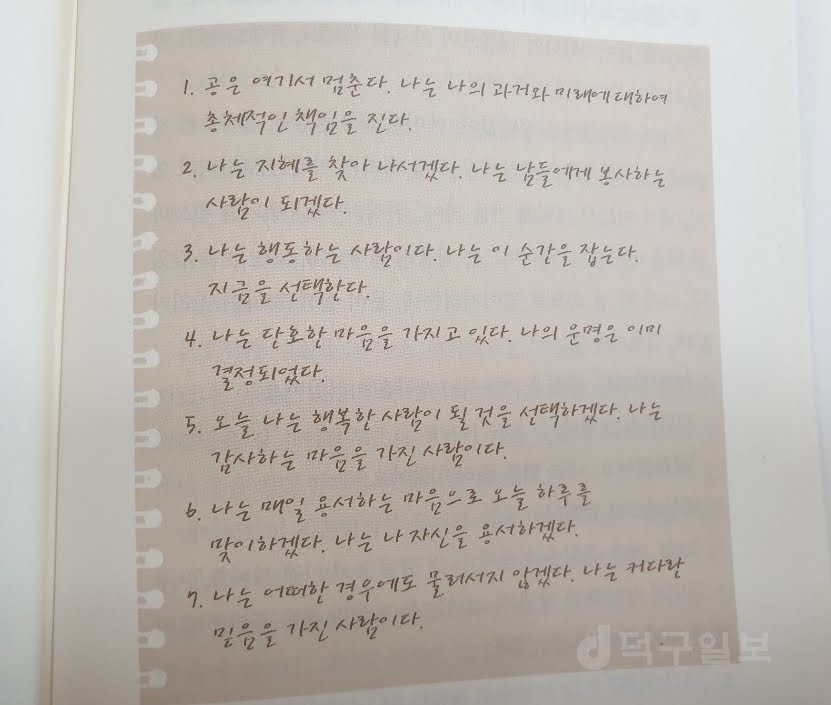 1. 공은 여기서 멈춘다. 나는 나의 과거와 미래에 대하여
총체적인 책임을 진다.
2. 나는 지혜를 찾아 나서겠다. 나는 남들에게 봉사하는
사람이 되겠다.
3. 나는 행동하는 사람이다. 나는 이 순간을 잡는다.
지금을 선택한다.
4. 나는 단호한 마음을 가지고 있다. 나의 운명은 이미
결정되었다.
5. 오늘 나는 행복한 사람이 될 것을 선택하겠다. 나는
감사하는 마음을 가진 사람이다.
6. 나는 매일 용서하는 마음으로 오늘 하루를
맞이하겠다. 나는 나 자신을 용서하겠다.
7. 나는 어떠한 경우에도 물러서지 않겠다. 나는 커다란
믿음을 가진 사람이다.
d 덕구일보